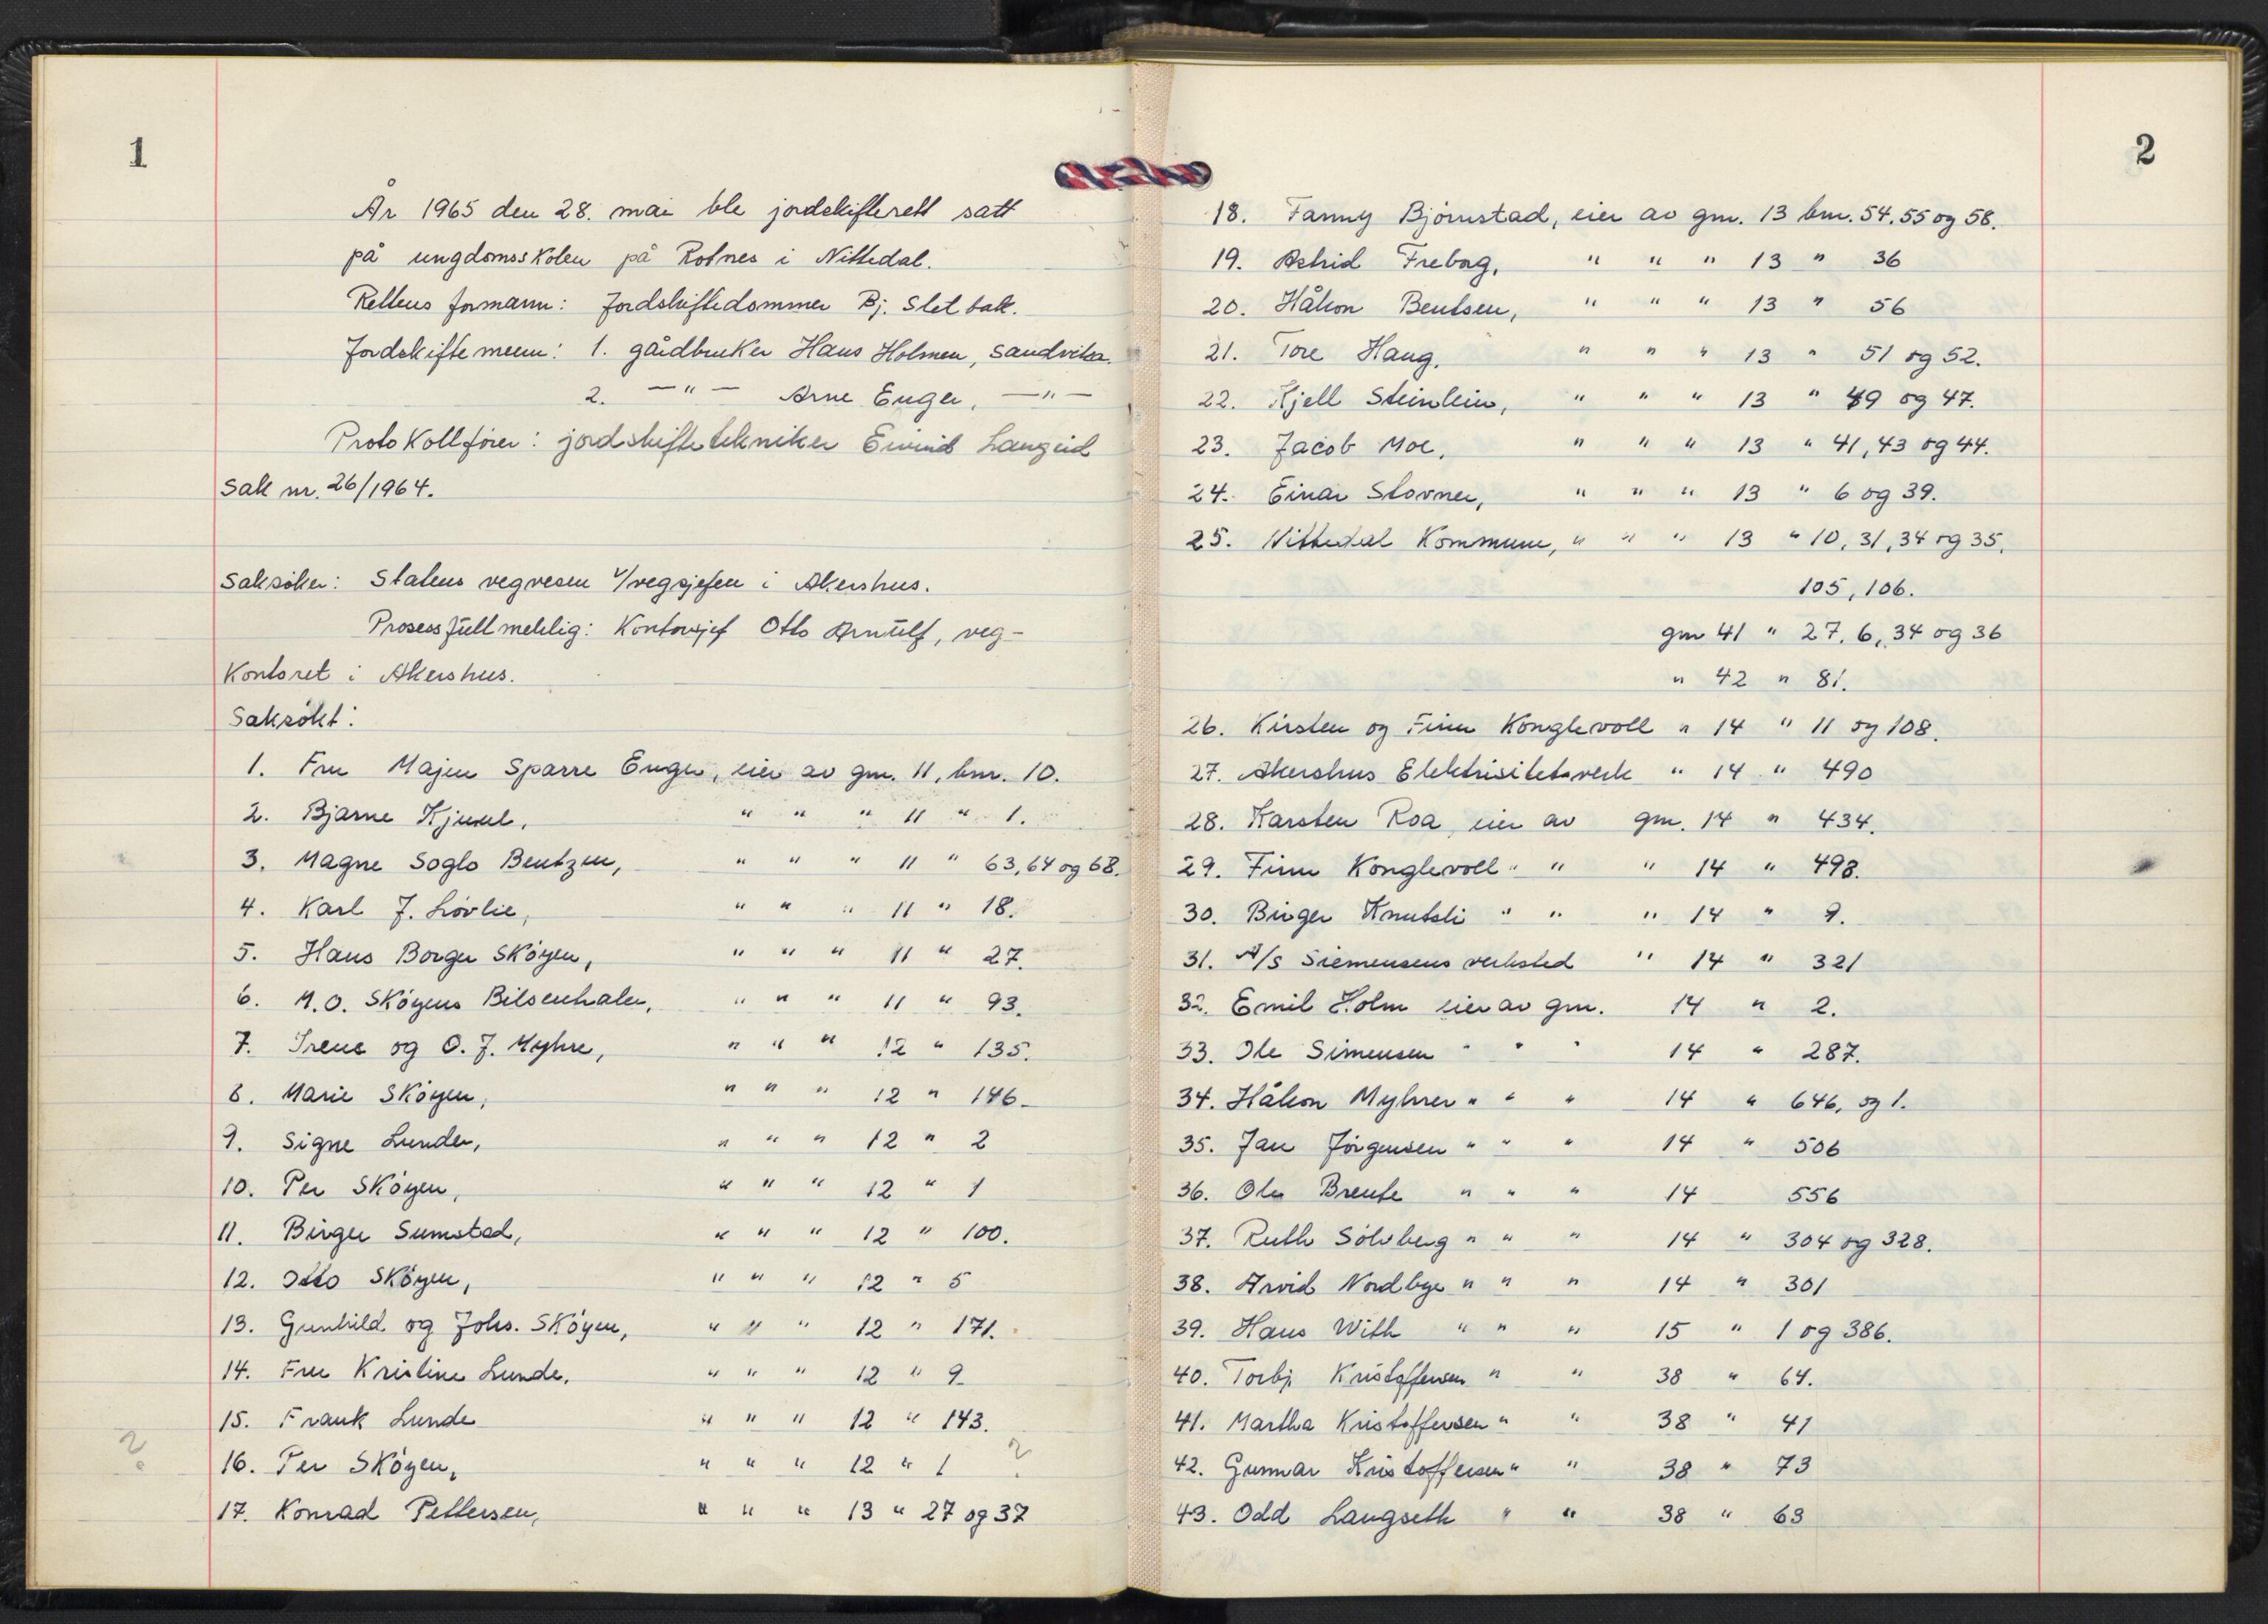 1
År 1965 den 28. mai ble jordskifterett satt
på ungdomsskolen på Rotnes i Nittedal.
Rettens formann: Jordskiftedommer Bj. Sletbak.
Jordskiftemenn: 1. gårdbruker Hans Holmen, Sandvika.
2. — " — Arne Enger, — " —
Protokollfører: jordskiftetekniker Eivind Langeid
Sak nr. 26/1964.
Saksøker: Statens vegvesen v/vegsjefen i Akershus.
Prosessfullmektig: Kontorsjef Otto Arnulf, veg-
kontoret i Akershus.
Saksøkt:
1. Fru Majen Sparre Enger, eier av gnr. 11, bnr. 10.
2. Bjarne Kjuul, " " " 11 " 1.
3. Magne Soglo Bentzen, " " " 11 " 63, 64 og 68.
4. Karl J. Løvlie, " " " 11 " 18.
5. Hans Borger Skøyen, " " " 11 " 27.
6. M.O. Skøyens Bilsenhaler, " " " 11 " 93.
7. Irene og O. J. Myhre, " " " 12 " 135.
8. Marie Skøyen, " " " 12 " 146.
9. Signe Lunder, " " " 12 " 2
10. Per Skøyen, " " " 12 " 1
11. Birger Sumstad, " " " 12 " 100.
12. Otto Skøyen, " " " 12 " 5
13. Gunhild og Johs. Skøyen, " " " 12 " 171.
14. Fru Kristine Lunde, " " " 12 " 9
15. Frank Lunde " " " 12 " 143.
? 16. Per Skøyen, " " " 12 " 1 ?
17. Konrad Pettersen, " " " 13 " 27 og 37
2
18. Fanny Bjørnstad, eier av gnr. 13 bnr. 54. 55 og 58.
19. Astrid Frebag, " " " 13 " 36
20. Håkon Bentsen, " " " 13 " 56
21. Tore Haug, " " " 13 " 51 og 52.
22. Kjell Steinlein, " " " 13 " 49 og 47.
23. Jacob Moe, " " " 13 " 41, 43 og 44.
24. Einar Stovner, " " " 13 " 6 og 39.
25. Nittedal Kommune, " " " 13 " 10, 31, 34 og 35,
105, 106.
gnr 41 " 27, 6, 34 og 36
" 42 " 81.
26. Kirsten og Finn Konglevoll " 14 " 11 og 108.
27. Akershus Elektrisitetsverk " 14 " 490
28. Karsten Roa eier av gnr. 14 " 434.
29. Finn Konglevoll " " " 14 " 498.
30. Birger Knutsli " " " 14 " 9.
31. A/S Siemensens verksted " 14 " 321
32. Emil Holm eier av gnr. 14 " 2.
33. Ole Simensen " " " 14 " 287.
34. Håkon Myhrer " " " 14 " 646, og 1.
35. Jan Jørgensen " " " 14 " 506
36. Ola Brente " " " 14 556
37. Ruth Sølvberg " " " 14 " 304 og 328.
38. Arvid Nordbye " " " 14 " 301
39. Hans With " " " 15 " 1 og 386.
40. Torbj. Kristoffersen " " 38 " 64.
41. Martha Kristoffersen " " 38 " 41
42. Gunnar Kristoffersen " " 38 " 73
43. Odd Langseth " " 38 " 63